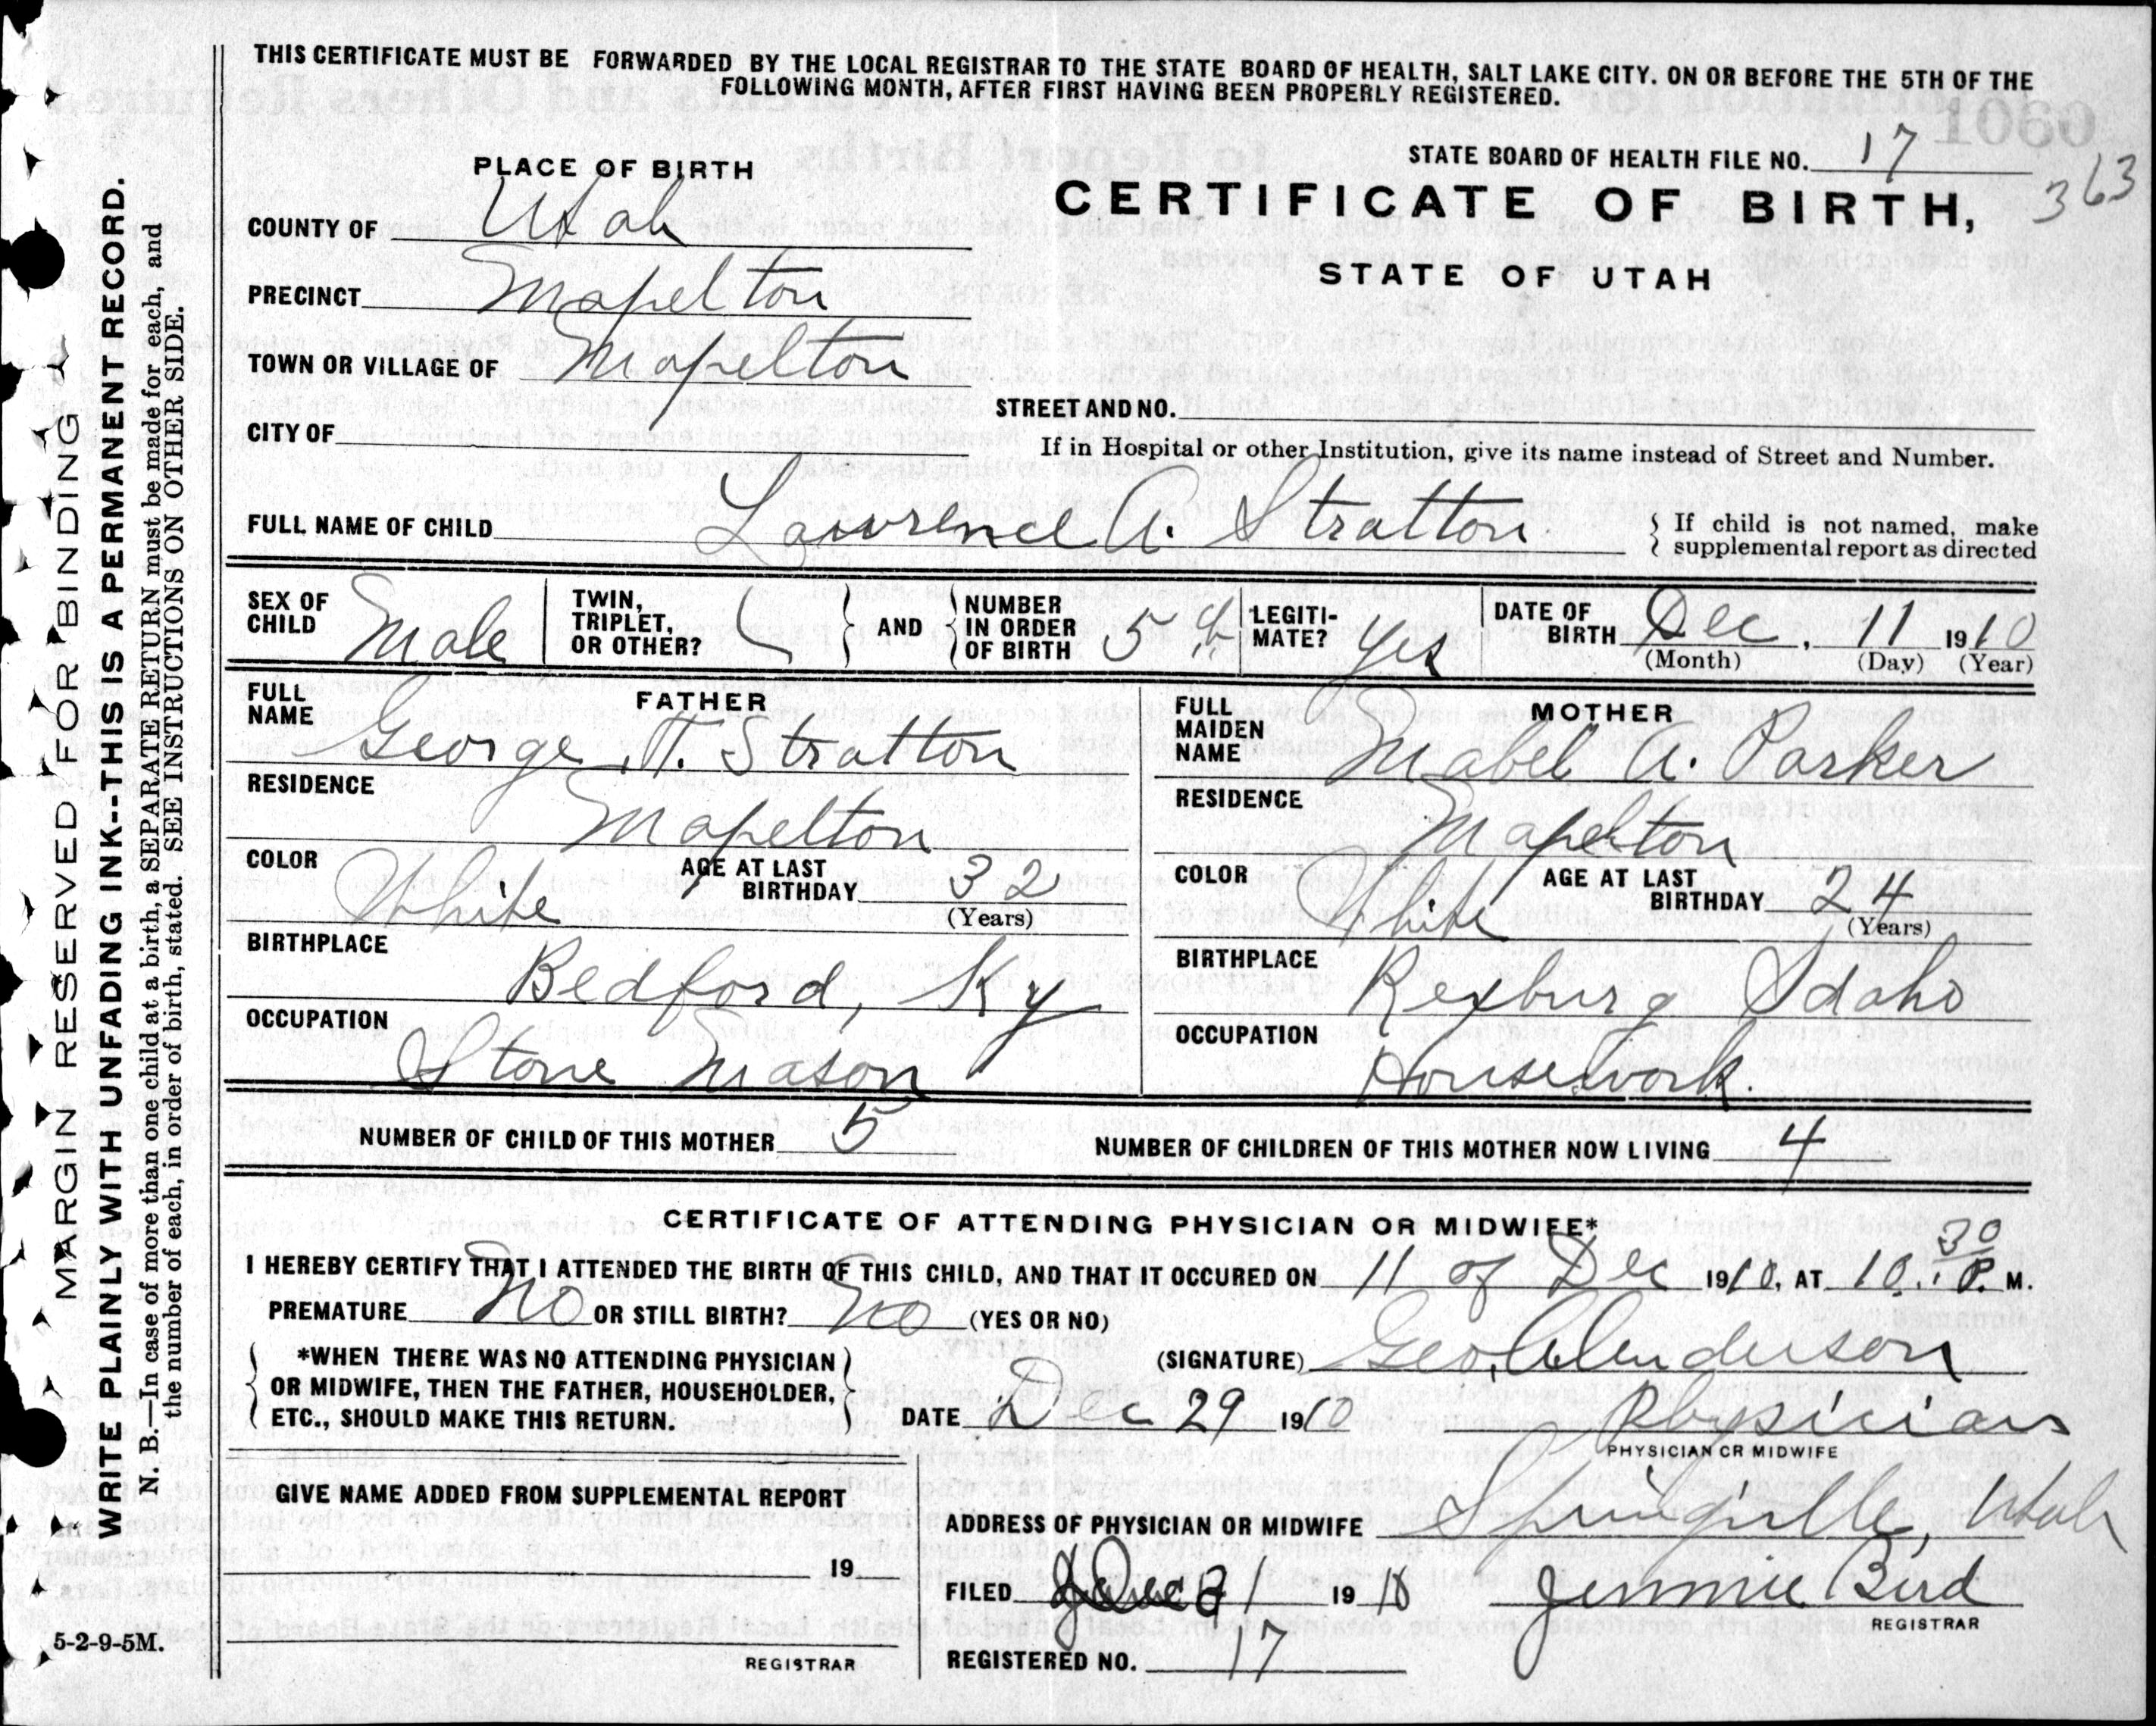 THIS CERTIFICATE MUST BE FORWARDED BY THE LOCAL REGISTRAR TO THE STATE BOARD OF HEALTH, SALT LAKE CITY. ON OR BEFORE THE 5TH OF THE
FOLLOWING MONTH, AFTER FIRST HAVING BEEN PROPERLY REGISTERED.
MARGIN RESERVED FOR BINDING
WRITE PLAINLY WITH UNFADING INK--THIS IS A PERMANENT RECORD.
N. B.—In case of more than one child at a birth, a SEPARATE RETURN must be made for each, and
the number of each, in order of birth, stated. SEE INSTRUCTIONS ON OTHER SIDE.
STATE BOARD OF HEALTH FILE NO. 17
363
PLACE OF BIRTH
CERTIFICATE OF BIRTH,
STATE OF UTAH
COUNTY OF Utah
PRECINCT Mapelton
TOWN OR VILLAGE OF Mapelton
STREET AND NO.
CITY OF
If in Hospital or other Institution, give its name instead of Street and Number.
FULL NAME OF CHILD Lawrence A. Stratton
If child is not named, make
supplemental report as directed
SEX OF CHILD Male
TWIN, TRIPLET, OR OTHER?
AND
NUMBER IN ORDER OF BIRTH 5th
LEGITI-MATE? Yes
DATE OF BIRTH Dec, 11 1910
(Month) (Day) (Year)
FATHER
FULL NAME George T. Stratton
RESIDENCE Mapelton
COLOR White
AGE AT LAST BIRTHDAY 32
(Years)
BIRTHPLACE Bedford, Ky
OCCUPATION Stone Mason
MOTHER
FULL MAIDEN NAME Mabel A. Parker
RESIDENCE Mapelton
COLOR White
AGE AT LAST BIRTHDAY 24
(Years)
BIRTHPLACE Rexburg Idaho
OCCUPATION Housework.
NUMBER OF CHILD OF THIS MOTHER 5
NUMBER OF CHILDREN OF THIS MOTHER NOW LIVING 4
CERTIFICATE OF ATTENDING PHYSICIAN OR MIDWIFE*
I HEREBY CERTIFY THAT I ATTENDED THE BIRTH OF THIS CHILD, AND THAT IT OCCURED ON 11 of Dec 1910, AT 10:30 P. M.
PREMATURE No OR STILL BIRTH? No (YES OR NO)
*WHEN THERE WAS NO ATTENDING PHYSICIAN
OR MIDWIFE, THEN THE FATHER, HOUSEHOLDER,
ETC., SHOULD MAKE THIS RETURN.
(SIGNATURE) Geo. A. Anderson
DATE Dec 29 1910
Physician
PHYSICIAN OR MIDWIFE
GIVE NAME ADDED FROM SUPPLEMENTAL REPORT
19
REGISTRAR
ADDRESS OF PHYSICIAN OR MIDWIFE Springville, Utah
FILED Dec 31 1910
Jennie Bird
REGISTRAR
REGISTERED NO. 17
5-2-9-5M.